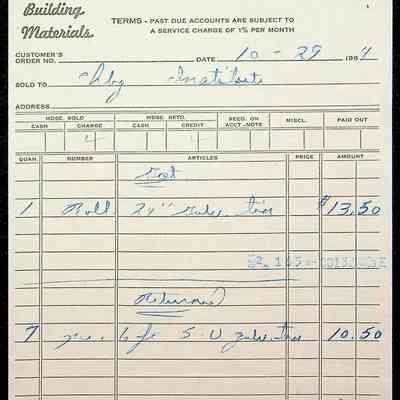 Building
Materials
TERMS - PAST DUE ACCOUNTS ARE SUBJECT TO
A SERVICE CHARGE OF 1% PER MONTH
CUSTOMER'S
ORDER NO. DATE 10 - 29 196
SOLD TO Institute
ADDRESS
MDSE. SOLD MDSE. RETD. RECD. ON MISCL. PAID OUT
CASH CHARGE CASH CREDIT ACCT-NOTE
4 4
QUAN. NUMBER ARTICLES PRICE AMOUNT
1 Roll 24" $13,50
Returned
7 pcs. 6 ft 5-U 10.50